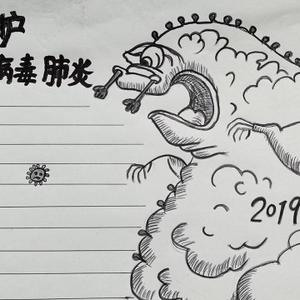 炉
病毒肺炎
2019